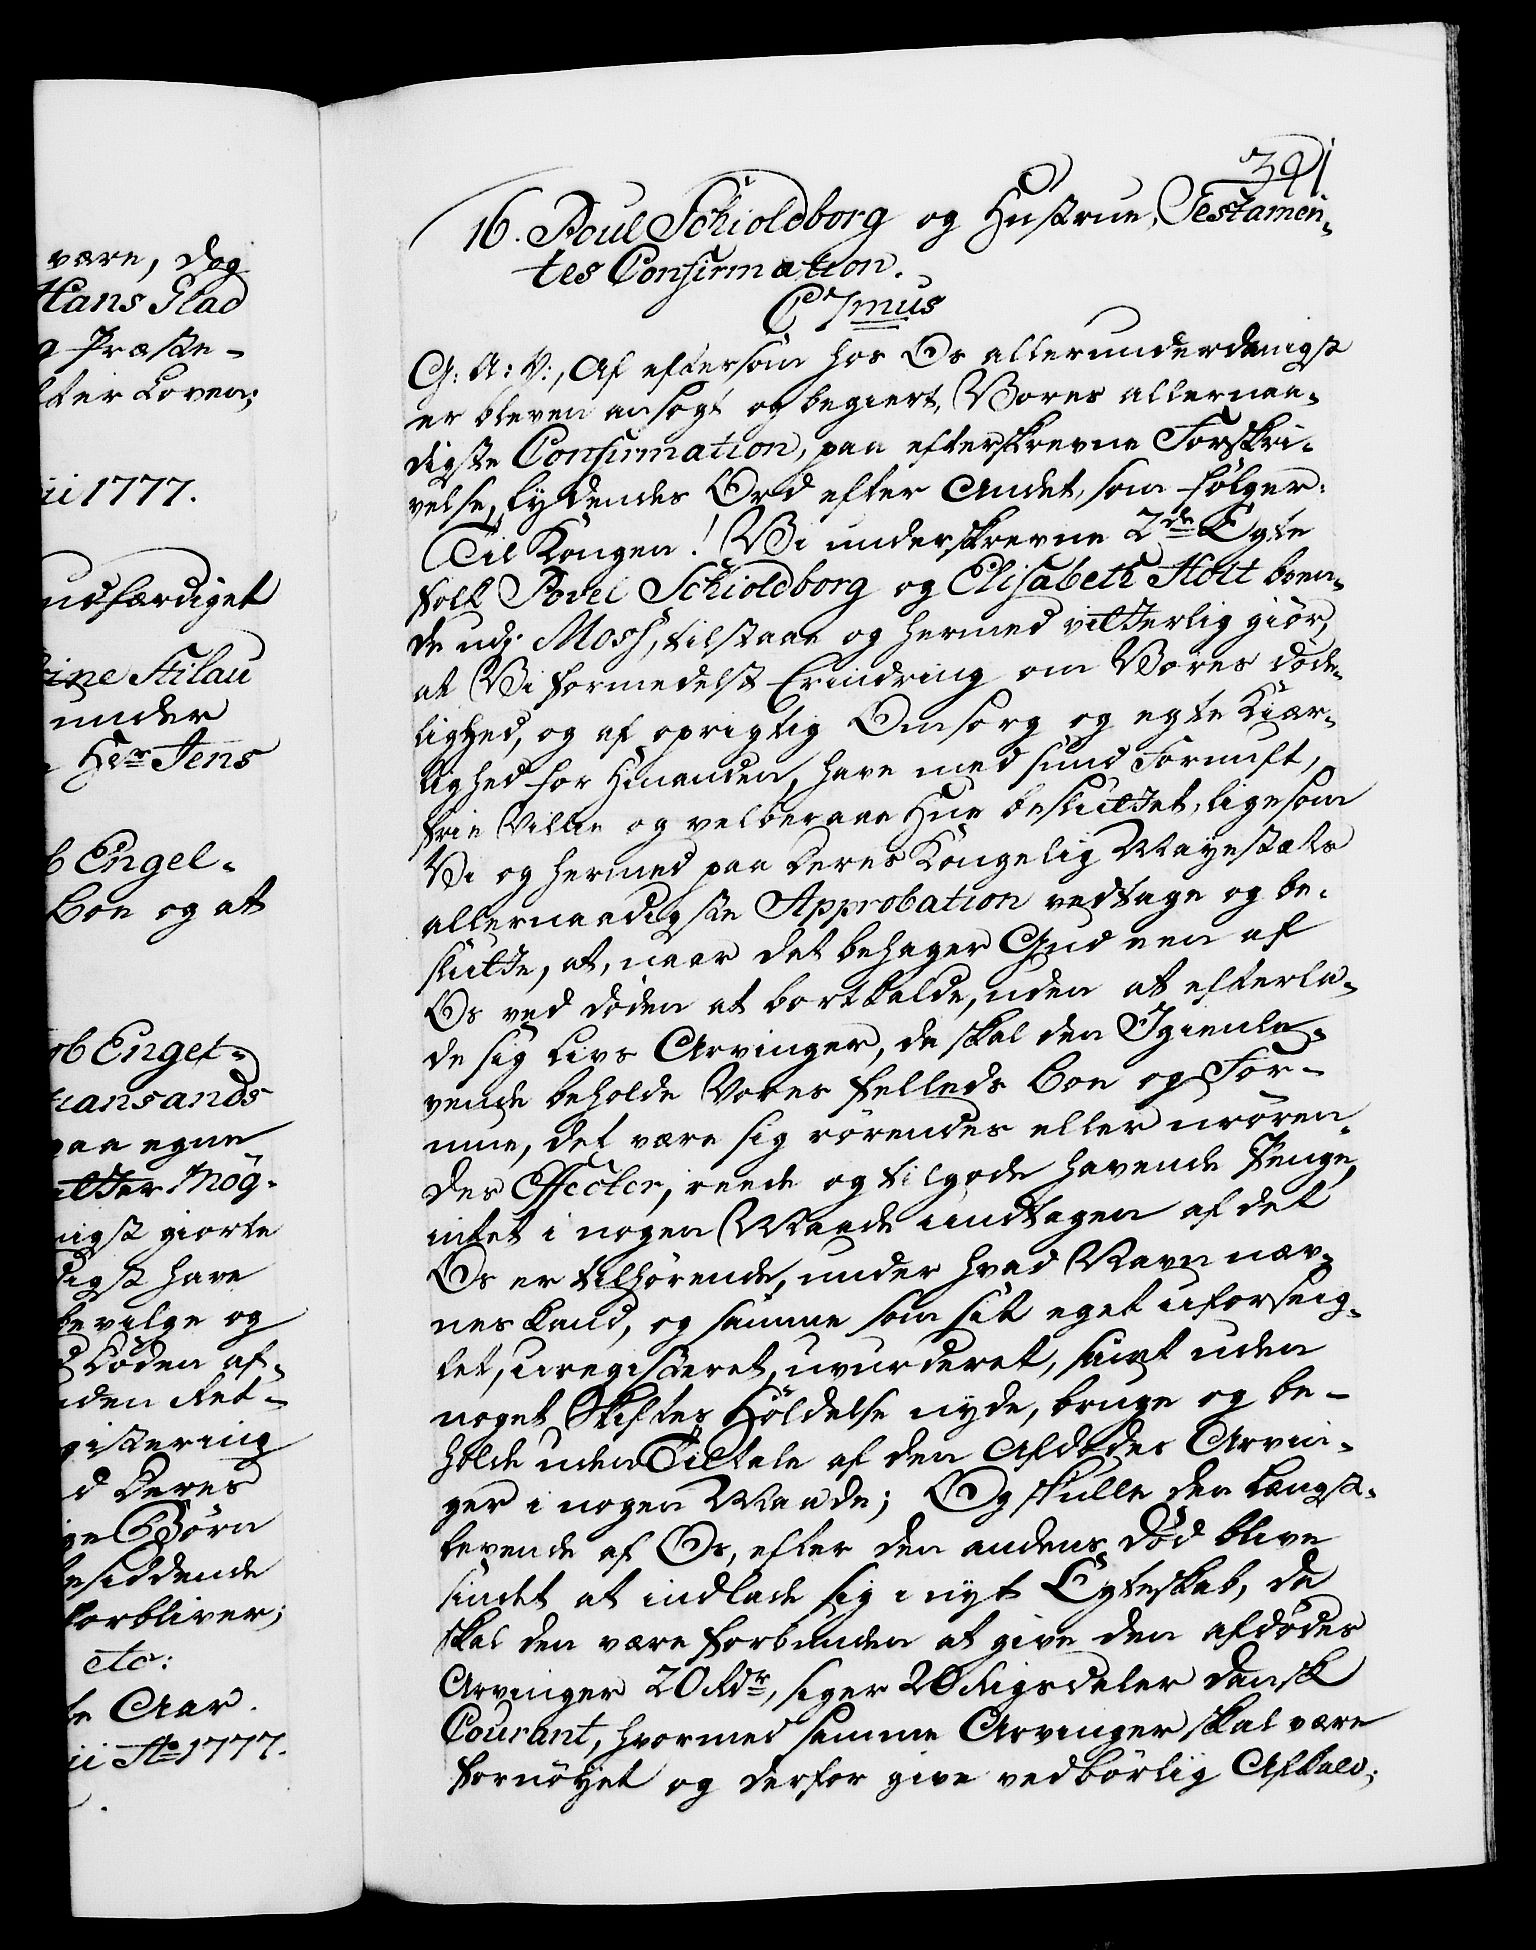 være, dog
Hans Glad
Præste-
ter Loven;
ii 1777.
udfærdiget
ine Hilau
under
Hr Jens
b Engel-
Boe og at
ob Engel-
tiansands
paa egne
atter Møg-
nigst giorte
digst have
bevilge og
d Døden af-
uden Ret-
gistering
d Deres
ge Børn
esiddende
forbliver;
etc:
te Aar.
ii Ao 1777.
391
16. Poul Schioldborg og Hustrue, Testamen-
tes Confirmation.
C 7mus
G: A: V:, At eftersom hos Os allerunderdanigst
er bleven ansøgt og begiert, Vores allernaa-
digste Confirmation, paa efterskrevne Forskri-
velse, lydendes Ord efter Andet, som følger:
Til Kongen! Vi underskrevne 2de Egte
folk Povel Schioldborg og Elisabeth Holt boen-
de udi Moss, tilstaae og hermed vitterlig giör,
at Vi formedelst Erindring om Vores døde-
lighed, og af oprigtig Omsorg og egte Kiær-
lighed for hinanden, have med sund Fornuft,
frie Villie og velberaae Hue besluttet, ligesom
Vi og hermed paa Deres Kongelig Mayestæts
allernaadigste Approbation vedtage og be-
slutte, at, naar det behager Gud een af
Os ved døden at bortkalde, uden at efterla-
de sig Livs Arvinger, da skal den Igienle-
vende beholde Vores fælleds Boe og For-
mue, det være sig rørendes eller urøren-
des Effecter, reede og tilgode havende Penge,
intet i nogen Maade undtagen af det
Os er tilhørende, under hvad Navn næv-
nes kand, og samme som sit eget uforseig-
let, uregisteret, uvurderet, samt uden
noget Skiftes Holdelse nyde, bruge og be-
holde uden Tiltale af den Afdødes Arvin-
ger i nogen Maade; Og skulle den længst-
levende af Os, efter den andens Død blive
sindet at indlade sig i nyt Egteskab, da
skal den være forbunden at give den afdødes
Arvinger 20 Rdr, siger 20 Rigsdaler dansk
Courant, hvormed samme Arvinger skal være
fornøyet og derfor give vedbørlig Afkald;